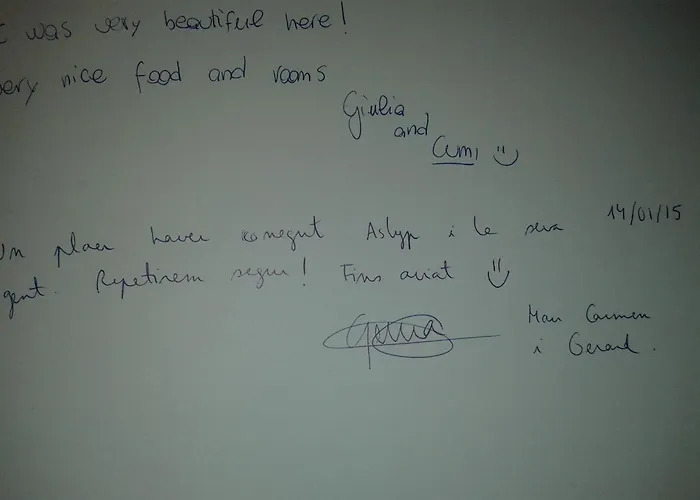 was very beautiful here!
very nice food and rooms
Giulia
and
Cumi :)
Un plaer haver conegut i la seva 14/01/15
gent. Repetirem segur! Fins aviat :)
Mari Carmen
i Gerard.